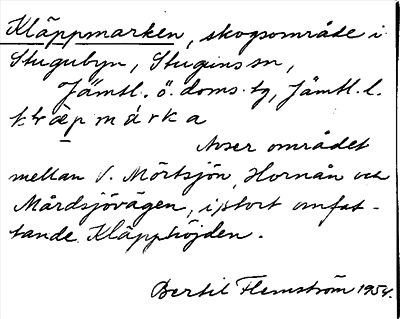 Kläppmarken, skogsområde i
Stugubyn, Stuginssn,
Jämtl. ö. doms. tg, Jämtl. l.
området
mellan V. Mörtsjön, Hornån och
Mårdsjövägen, i stort omfat-
tande Kläpphöjden.
Bertil Flemström 1954.